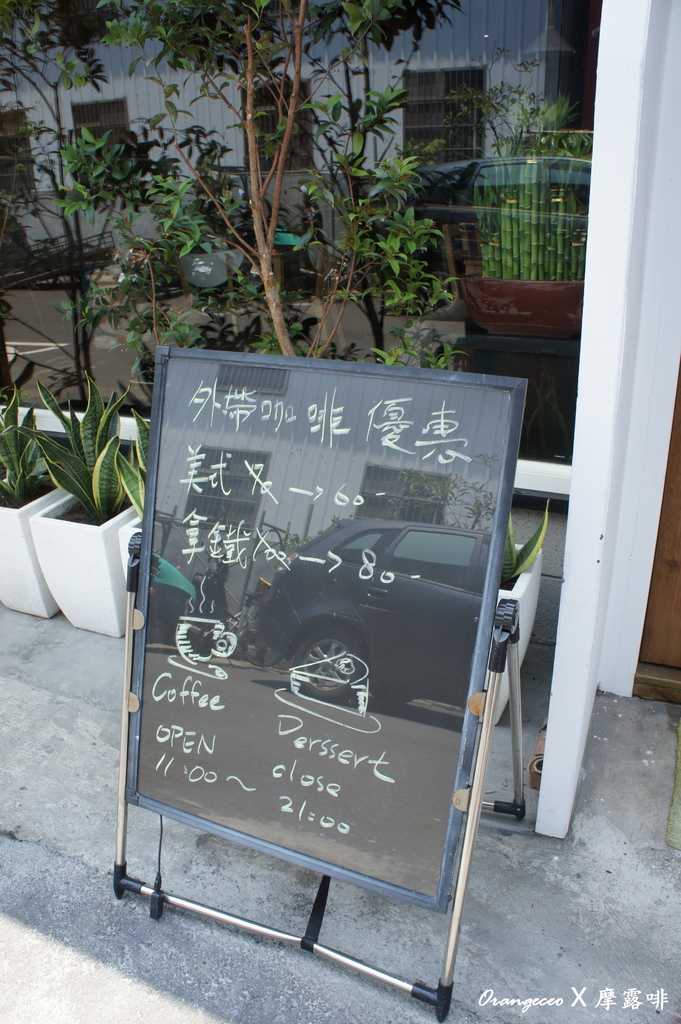 外帶咖啡優惠
美式 → 60-
拿鐵 → 80-
Coffee
Derssert
OPEN
11:00~
close
21:00
Orangeceo X 摩露啡